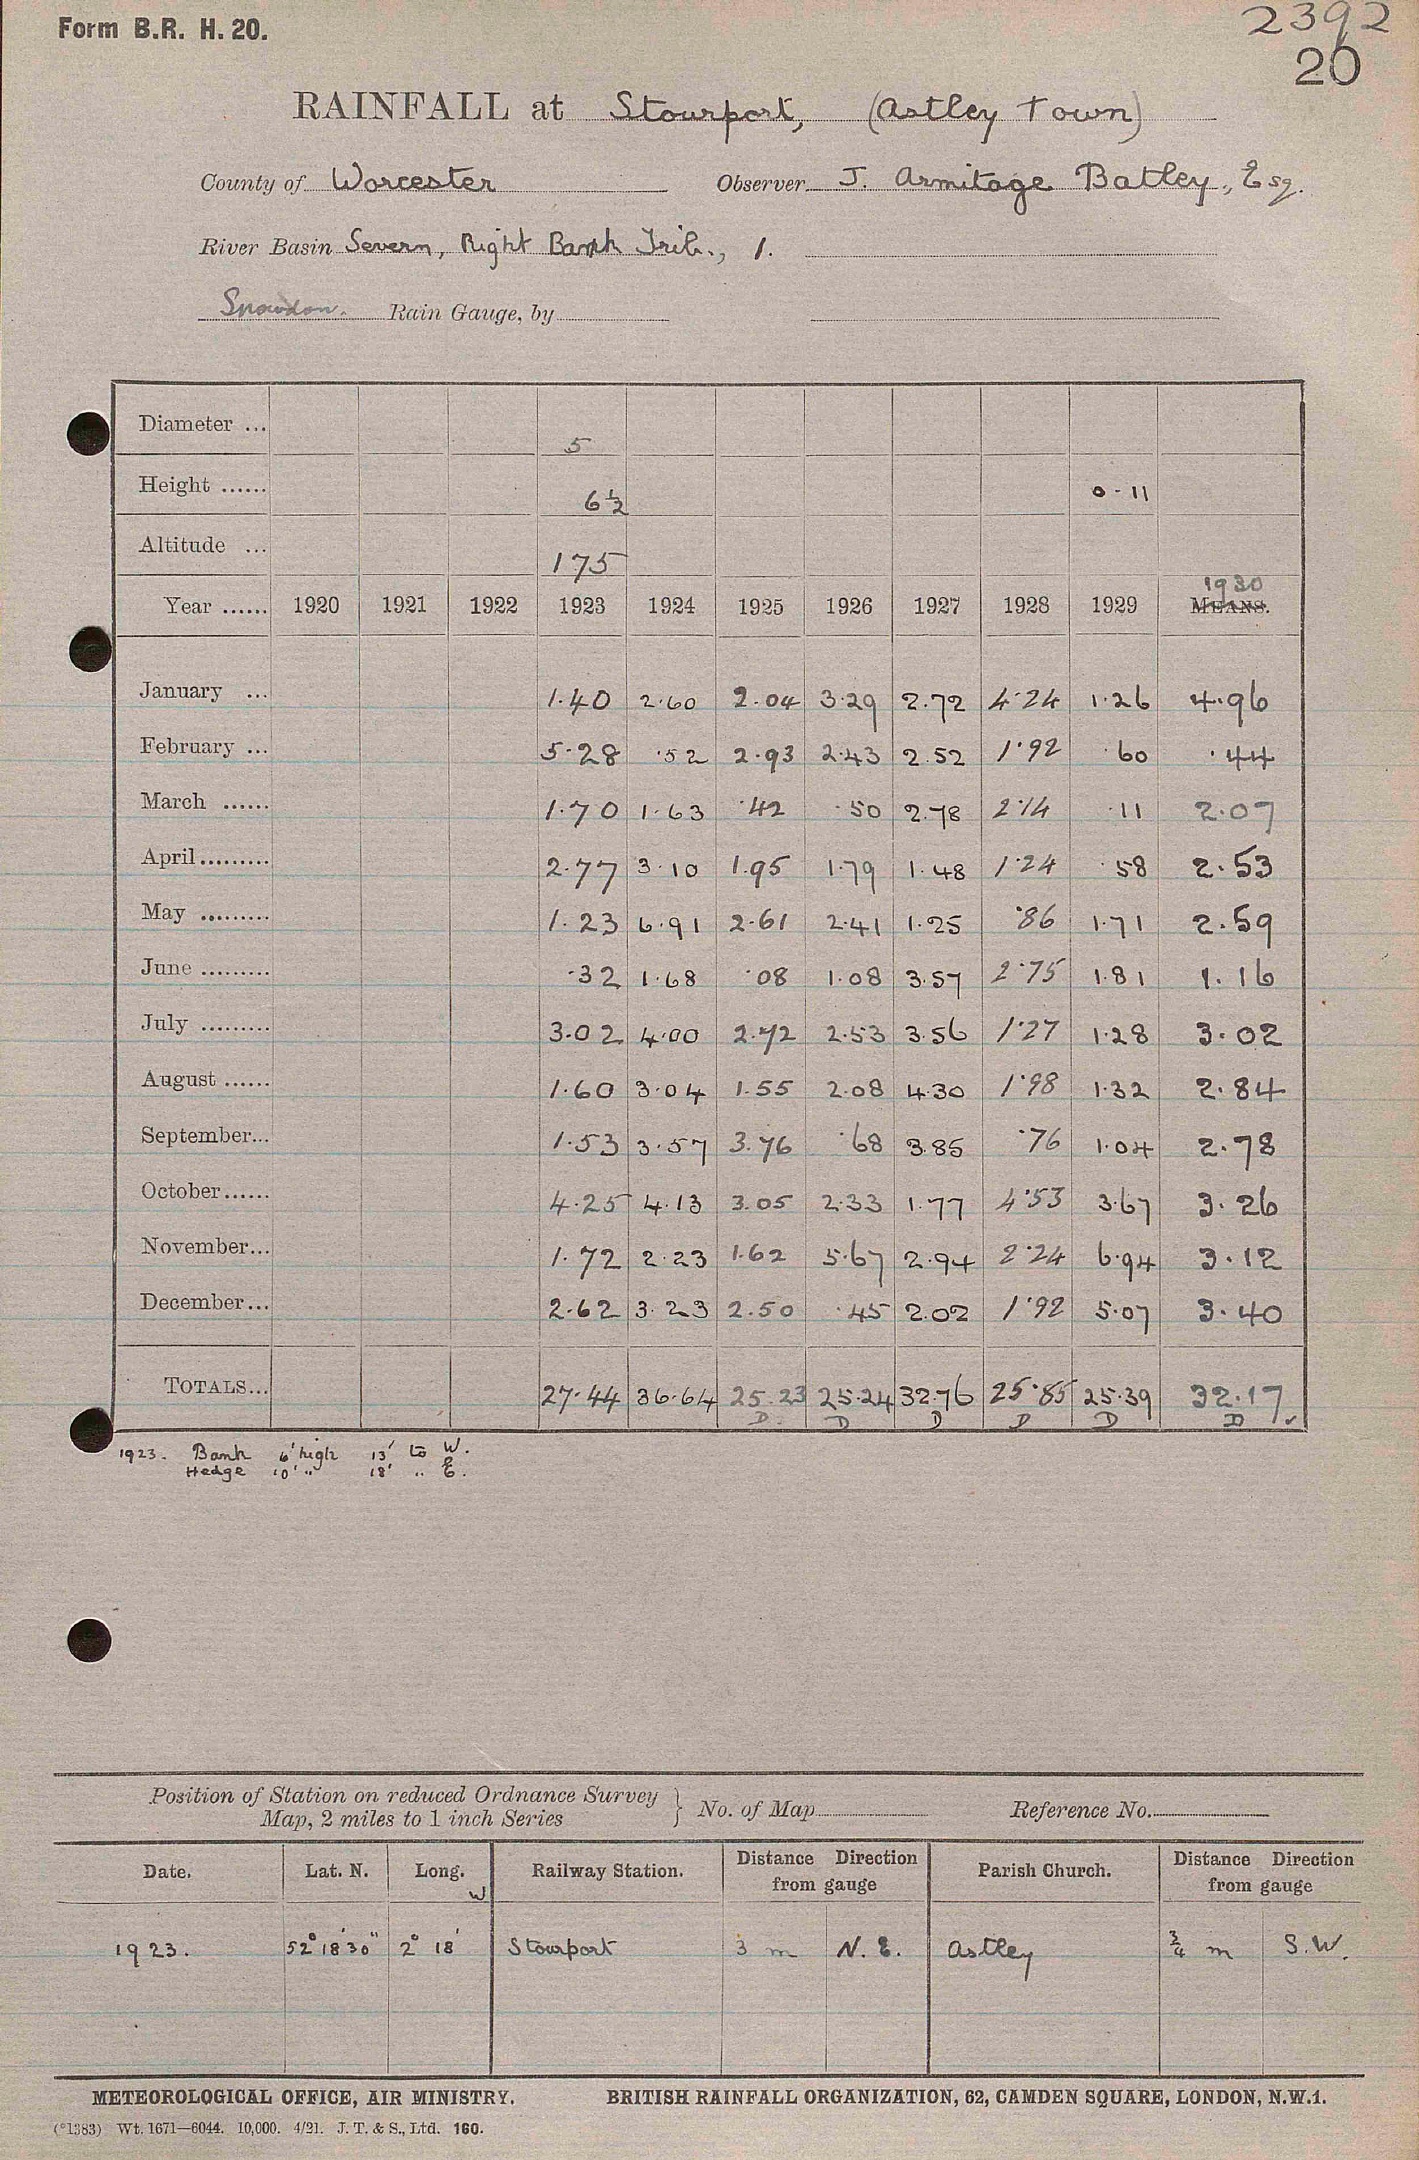 Form B.R. H. 20.
2392
20
RAINFALL at Stourport, (Astley Town)
County of Worcester Observer J. Armitage Batley, Esq.
River Basin Severn, Right Bank Trib., 1.
Snowdon. Rain Gauge, by
Diameter ... 5
Height ...... 6½ 0-11
Altitude ... 175
1930
Year ...... 1920 1921 1922 1923 1924 1925 1926 1927 1928 1929 MEANS.
January ... 1.40 2.60 2.04 3.29 2.72 4.24 1.26 4.96
February ... 5.28 .52 2.93 2.43 2.52 1.92 .60 .44
March ...... 1.70 1.63 .42 .50 2.78 2.14 .11 2.07
April......... 2.77 3.10 1.95 1.79 1.48 1.24 .58 2.53
May ......... 1.23 6.91 2.61 2.41 1.25 .86 1.71 2.59
June ......... .32 1.68 .08 1.08 3.57 2.75 1.81 1.16
July ......... 3.02 4.00 2.72 2.53 3.56 1.27 1.28 3.02
August ...... 1.60 3.04 1.55 2.08 4.30 1.98 1.32 2.84
September... 1.53 3.57 3.76 .68 3.85 .76 1.04 2.78
October...... 4.25 4.13 3.05 2.33 1.77 4.53 3.67 3.26
November... 1.72 2.23 1.62 5.67 2.94 2.24 6.94 3.12
December... 2.62 3.23 2.50 .45 2.02 1.92 5.07 3.40
TOTALS... 27.44 36.64 25.23 25.24 32.76 25.85 25.39 32.17
D. D D D D D ✓
1923. Bank 6' high 13' to W.
Hedge 10' " 18' " E.
Position of Station on reduced Ordnance Survey
Map, 2 miles to 1 inch Series } No. of Map Reference No.
Date. Lat. N. Long. W Railway Station. Distance Direction from gauge Parish Church. Distance Direction from gauge
1923. 52° 18' 30" 2° 18' Stourport 3 m N. E. Astley ¾ m S.W.
METEOROLOGICAL OFFICE, AIR MINISTRY. BRITISH RAINFALL ORGANIZATION, 62, CAMDEN SQUARE, LONDON, N.W.1.
(*1383) Wt. 1671—6044. 10,000. 4/21. J. T. & S., Ltd. 160.